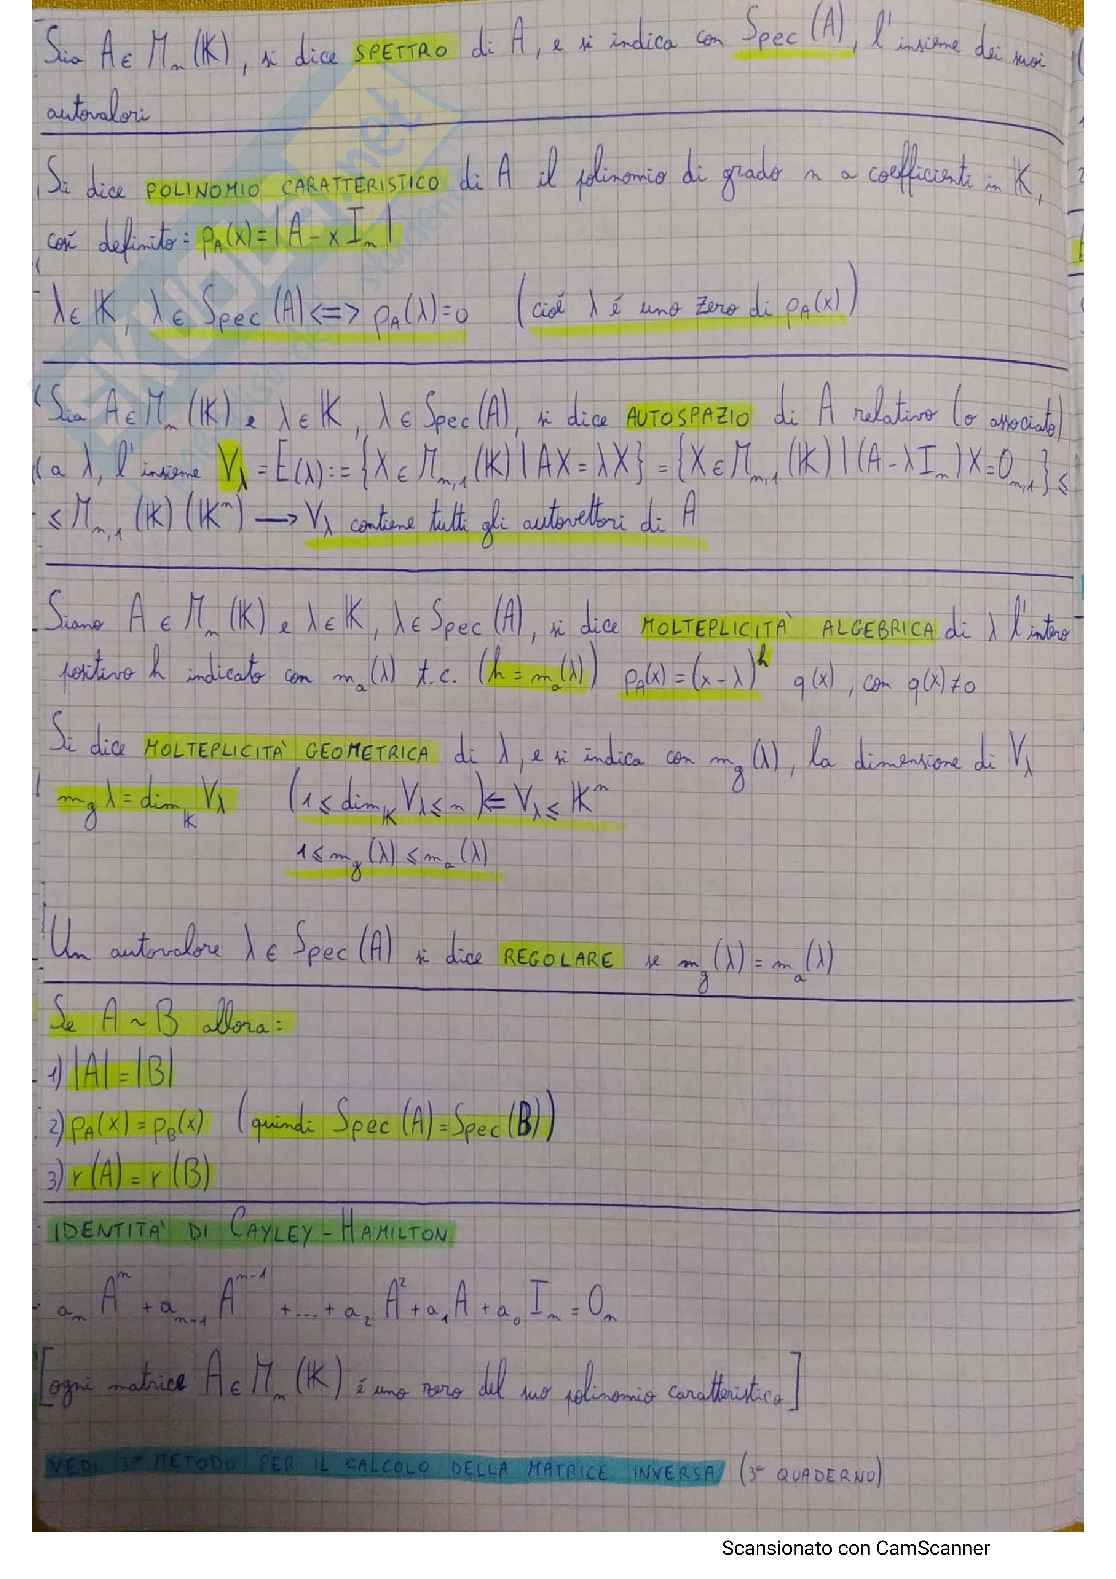 Sia A ∈ M_n (K), si dice SPETTRO di A, e si indica con Spec (A), l'insieme dei suoi
autovalori
Si dice POLINOMIO CARATTERISTICO di A il polinomio di grado n a coefficienti in K,
così definito: p_A(x) = |A - x I_n|
λ ∈ K, λ ∈ Spec (A) <=> p_A(λ)=0 (cioè λ é uno zero di p_A(x))
Sia A ∈ M_n (K) e λ ∈ K, λ ∈ Spec (A), si dice AUTOSPAZIO di A relativo (o associato)
a λ, l'insieme V_λ = E(λ) := {X ∈ M_n,1 (K) | AX = λX} = {X ∈ M_n,1 (K) | (A - λ I_n) X = O_n,1} ≤
≤ M_n,1 (K) (K^n) → V_λ contiene tutti gli autovettori di A
Siano A ∈ M_n (K) e λ ∈ K, λ ∈ Spec (A), si dice MOLTEPLICITA' ALGEBRICA di λ l'intero
positivo h indicato con m_a (λ) t.c. (h = m_a (λ)) p_A(x) = (x - λ)^h q(x), con q(λ) ≠ 0
Si dice MOLTEPLICITA' GEOMETRICA di λ, e si indica con m_g (λ), la dimensione di V_λ
m_g λ = dim_K V_λ (1 ≤ dim_K V_λ ≤ n) <= V_λ ≤ K^n
1 ≤ m_g (λ) ≤ m_a (λ)
Un autovalore λ ∈ Spec (A) si dice REGOLARE se m_g (λ) = m_a (λ)
Se A ~ B allora:
1) |A| = |B|
2) p_A(x) = p_B(x) (quindi Spec (A) = Spec (B))
3) r (A) = r (B)
IDENTITA' DI CAYLEY-HAMILTON
a_n A^n + a_n-1 A^n-1 + ... + a_2 A^2 + a_1 A + a_0 I_n = O_n
[ogni matrice A ∈ M_n (K) é uno zero del suo polinomio caratteristico]
VEDI 3° METODO PER IL CALCOLO DELLA MATRICE INVERSA (3° QUADERNO)
Scansionato con CamScanner